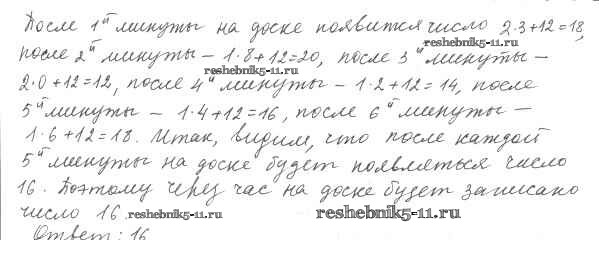 После 1й минуты на доске появится число 2·3+12=18,
reshebnik5-11.ru
после 2й минуты – 1·8+12=20, после 3й минуты –
reshebnik5-11.ru
2·0+12=12, после 4й минуты – 1·2+12=14, после
5й минуты – 1·4+12=16, после 6й минуты –
1·6+12=18. Итак, видим, что после каждой
5й минуты на доске будет появляться число
16. Поэтому через час на доске будет записано
число 16.
reshebnik5-11.ru
reshebnik5-11.ru
Ответ: 16